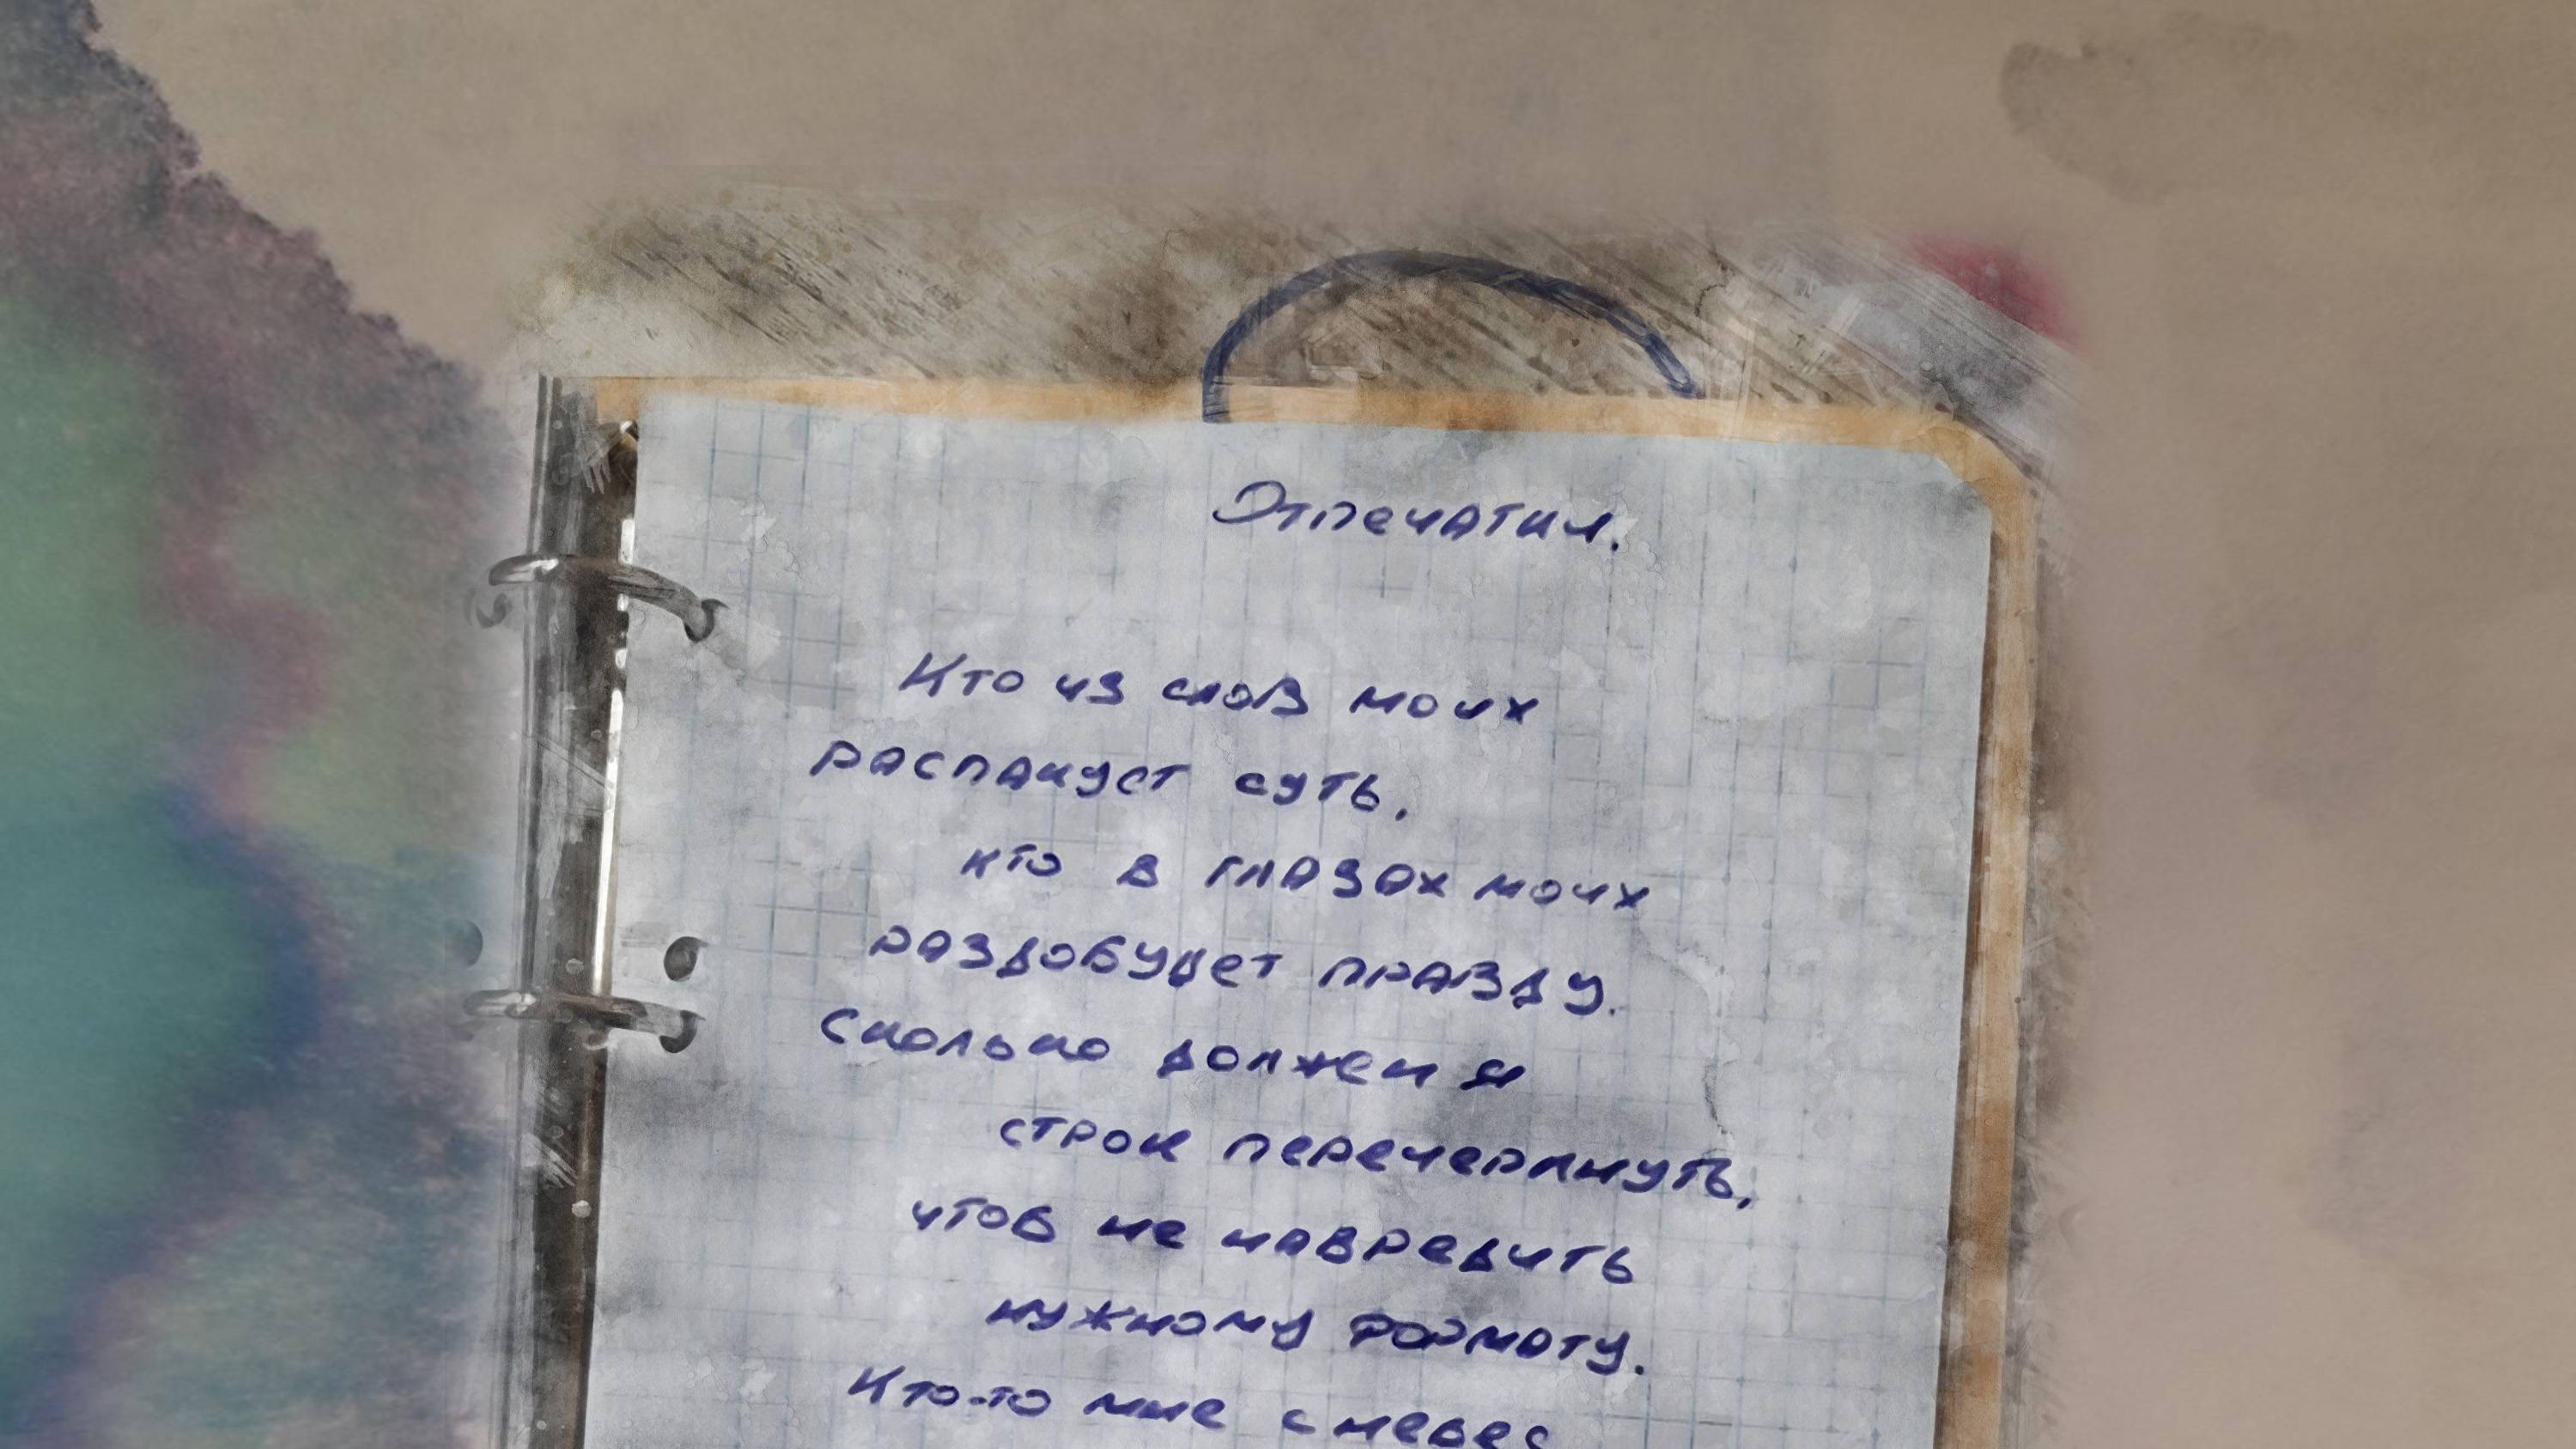 Отпечатки.
Кто из слов моих
распакует суть,
кто в глазах моих
раздобудет правду.
Сколько должен я
строк перечеркнуть,
чтоб не навредить
нужному формату.
Кто-то мне с небес